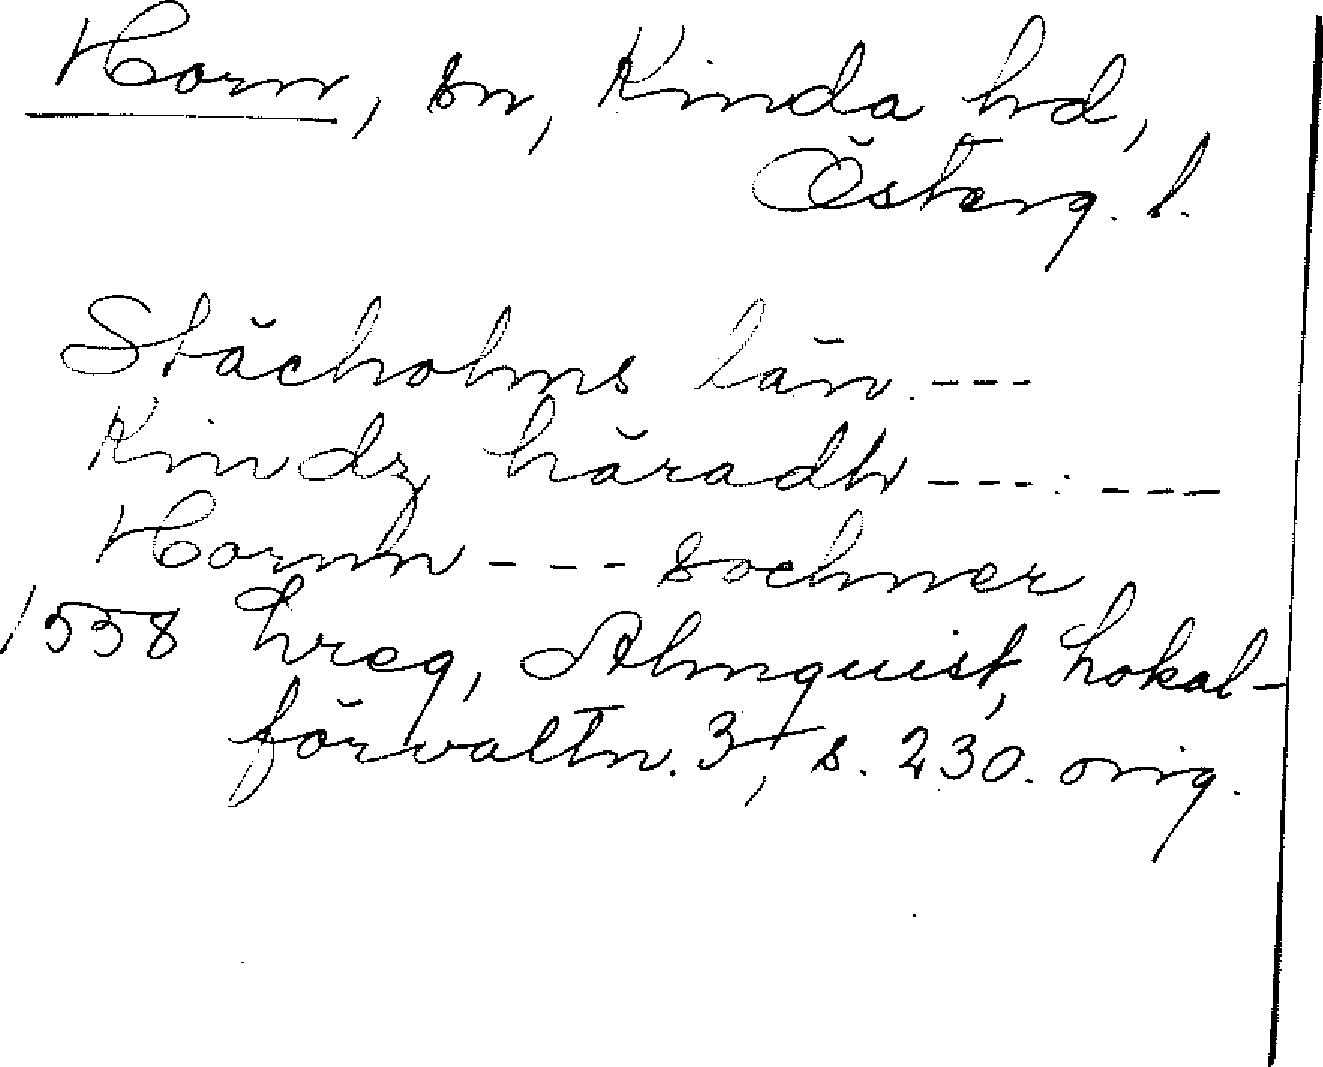 Horn, sn, Kinda hd,
Österg. l.
Stächolms län. ---
Kindz häradh --- : ---
Hornh --- sochner
1558 Lreg, Almquist, Lokal-
förvaltn. 3, s. 230. orig.